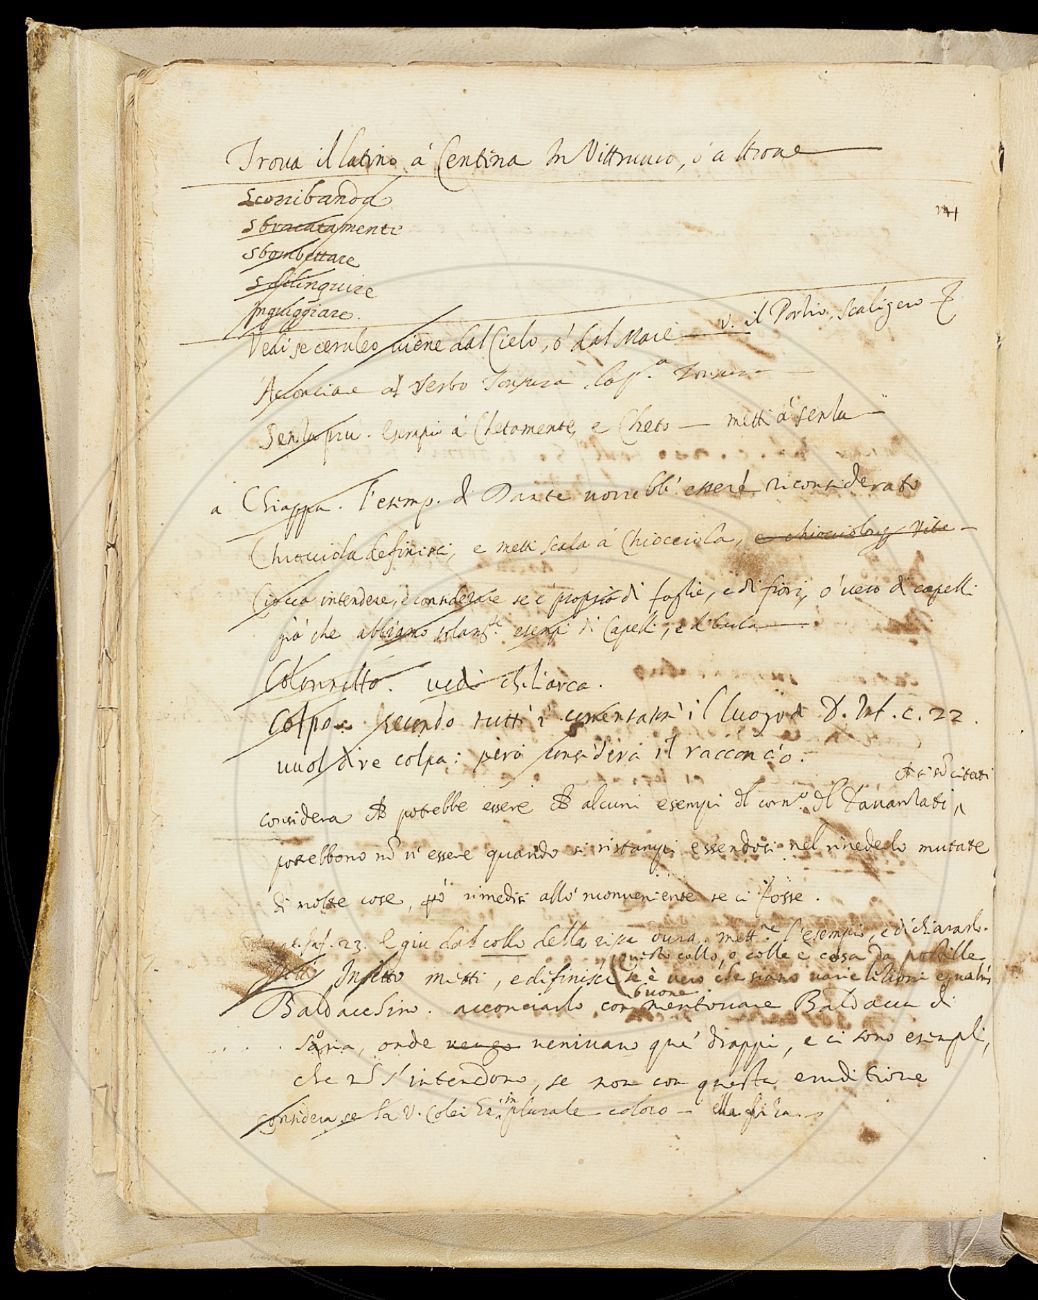 Trova il latino à Centina In Vittruvio, ò altrove
141
scorribanda
sbracatamente
sbombettare
scilinguire
Inguiggiare.
Vedi se ceruleo viene dal Cielo, ò dal Mare v. il Portio, Scaligero
Acconciare al Verbo
Senza più. Esempio à Chetamente, e Cheto — metti à senza
a Chiappa. l'esemp. d Dante vorrebb' essere riconsiderato
Chiocciola definisci, e metti scala à Chiocciola, e chiocciola Vite
Ciocca intendere, e considerare se è proprio di foglie, e di fiori, ò vero di capelli
già che abbiamo solam.te esempi di Capelli, e d'
Colonnello. vedi chiliarca.
Colpo. secondo tutti i comentatri il luogo d D. Inf. c. 22.
vuol dire colpa: però considera il racconcio.
considera potrebbe essere alcuni esempi del corn.o del Davanzati
citati
potrebbono nō vi essere quando si ristampi essendosi nel rivederlo mutate
di molte cose, però rimedisi allo 'nconveniente se ci fosse.
Inf. 23. E giù dal collo della ripa dura. mett.ne l'esempio, e dichiararlo.
questo collo, o colle è cosa da postille
Insetto metti, e definisci se è vero che siano varie lezioni e qualsi
buone
Baldacchino. acconciarlo con mentovare Baldacca di
Soria, onde vengo venivano que' drappi, e ci sono esempli,
che nō s'intendono, se non con questa erudizione
considera se la V. Colei in plurale coloro —